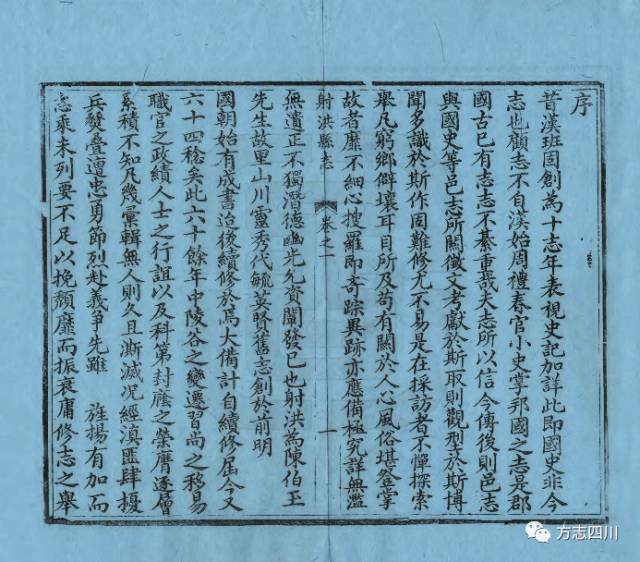 序
昔漢班固創為十志年表視史記加詳此即國史非今
志也顧志不自漢始周禮春官小史掌邦國之志是郡
國古已有志志不綦重哉夫志所以信今傳後則邑志
與國史等邑志所關徵文考獻於斯取則觀型於斯博
聞多識於斯作固難修尤不易是在採訪者不憚探索
舉凡窮鄉僻壤耳目所及苟有關於人心風俗堪登掌
故者靡不細心搜羅即奇踪異跡亦應備極究詳無濫
射洪縣志
卷之一
一
無遺正不獨潛德幽光允資闡發已也射洪為陳伯玉
先生故里山川靈秀代毓英賢舊志創於前明
國朝始有成書迨後續修於焉大備計自續修屆今又
六十四稔矣此六十餘年中陵谷之變遷習尚之移易
職官之政績人士之行誼以及科第封廕之榮膺逐層
累積不知凡幾彙輯無人則久且澌滅况經滇匪肆擾
兵燹疊遭忠勇節烈赴義爭先雖 旌揚有加而
志乘未列要不足以挽頹靡而振衰庸修志之舉
方志四川